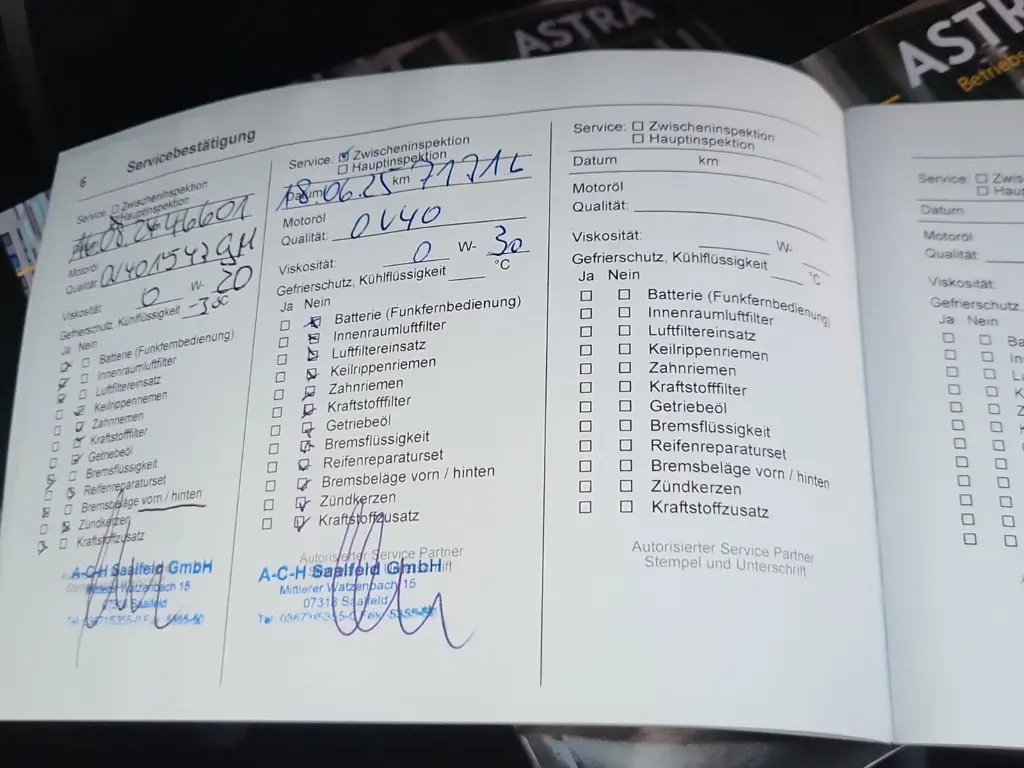 ASTRA
ASTR
Betriebs
6
Servicebestätigung
Service: Zwischeninspektion
Hauptinspektion
08.24 46601
Motoröl
Qualität: OV401547
Viskosität: 0 W- 20
Gefrierschutz, Kühlflüssigkeit -3 °C
Ja Nein
Batterie (Funkfernbedienung)
Innenraumluftfilter
Luftfiltereinsatz
Keilrippenriemen
Zahnriemen
Kraftstofffilter
Getriebeöl
Bremsflüssigkeit
Reifenreparaturset
Bremsbeläge vorn / hinten
Zündkerzen
Kraftstoffzusatz
A-C-H Saalfeld GmbH
Mittlerer Watzenbach 15
07318 Saalfeld
Service: Zwischeninspektion
Hauptinspektion
Datum 18.06.25 km 71714
Motoröl
Qualität: OV40
Viskosität: 0 W- 30
Gefrierschutz, Kühlflüssigkeit °C
Ja Nein
Batterie (Funkfernbedienung)
Innenraumluftfilter
Luftfiltereinsatz
Keilrippenriemen
Zahnriemen
Kraftstofffilter
Getriebeöl
Bremsflüssigkeit
Reifenreparaturset
Bremsbeläge vorn / hinten
Zündkerzen
Kraftstoffzusatz
Autorisierter Service Partner
A-C-H Saalfeld GmbH
Mittlerer Watzenbach 15
07318 Saalfeld
Service: Zwischeninspektion
Hauptinspektion
Datum km
Motoröl
Qualität:
Viskosität: W-
Gefrierschutz, Kühlflüssigkeit °C
Ja Nein
Batterie (Funkfernbedienung)
Innenraumluftfilter
Luftfiltereinsatz
Keilrippenriemen
Zahnriemen
Kraftstofffilter
Getriebeöl
Bremsflüssigkeit
Reifenreparaturset
Bremsbeläge vorn / hinten
Zündkerzen
Kraftstoffzusatz
Autorisierter Service Partner
Stempel und Unterschrift
Service: Zwis
Haup
Datum
Motoröl
Qualität:
Viskosität:
Gefrierschutz
Ja Nein
Ba
In
Lu
K
Z